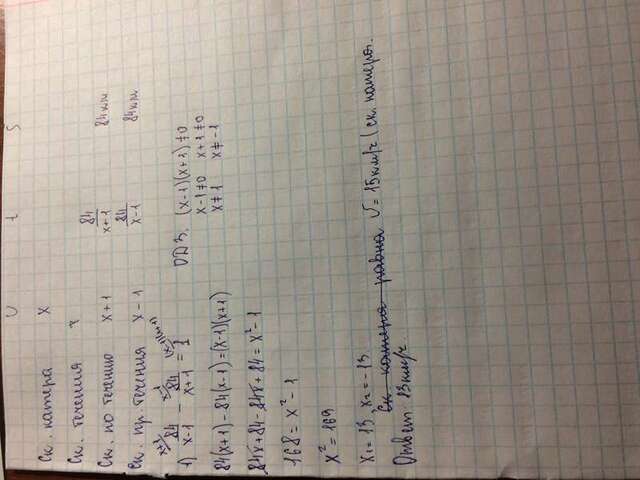 υ t S
Ск. катера x
Ск. течения 1
Ск. по течению x+1 84/(x+1) 84км
Ск. пр. течения x-1 84/(x-1) 84км
1) 84/(x-1) - 84/(x+1) = 1 ОДЗ. (x-1)(x+1)≠0
x-1≠0 x+1≠0
84(x+1)-84(x-1)=(x-1)(x+1) x≠1 x≠-1
84x+84-84x+84=x²-1
168=x²-1
x²=169
x₁=13, x₂=-13
Ск. катера равна υ=15км/ч (ск. катера.
Ответ: 13км/ч